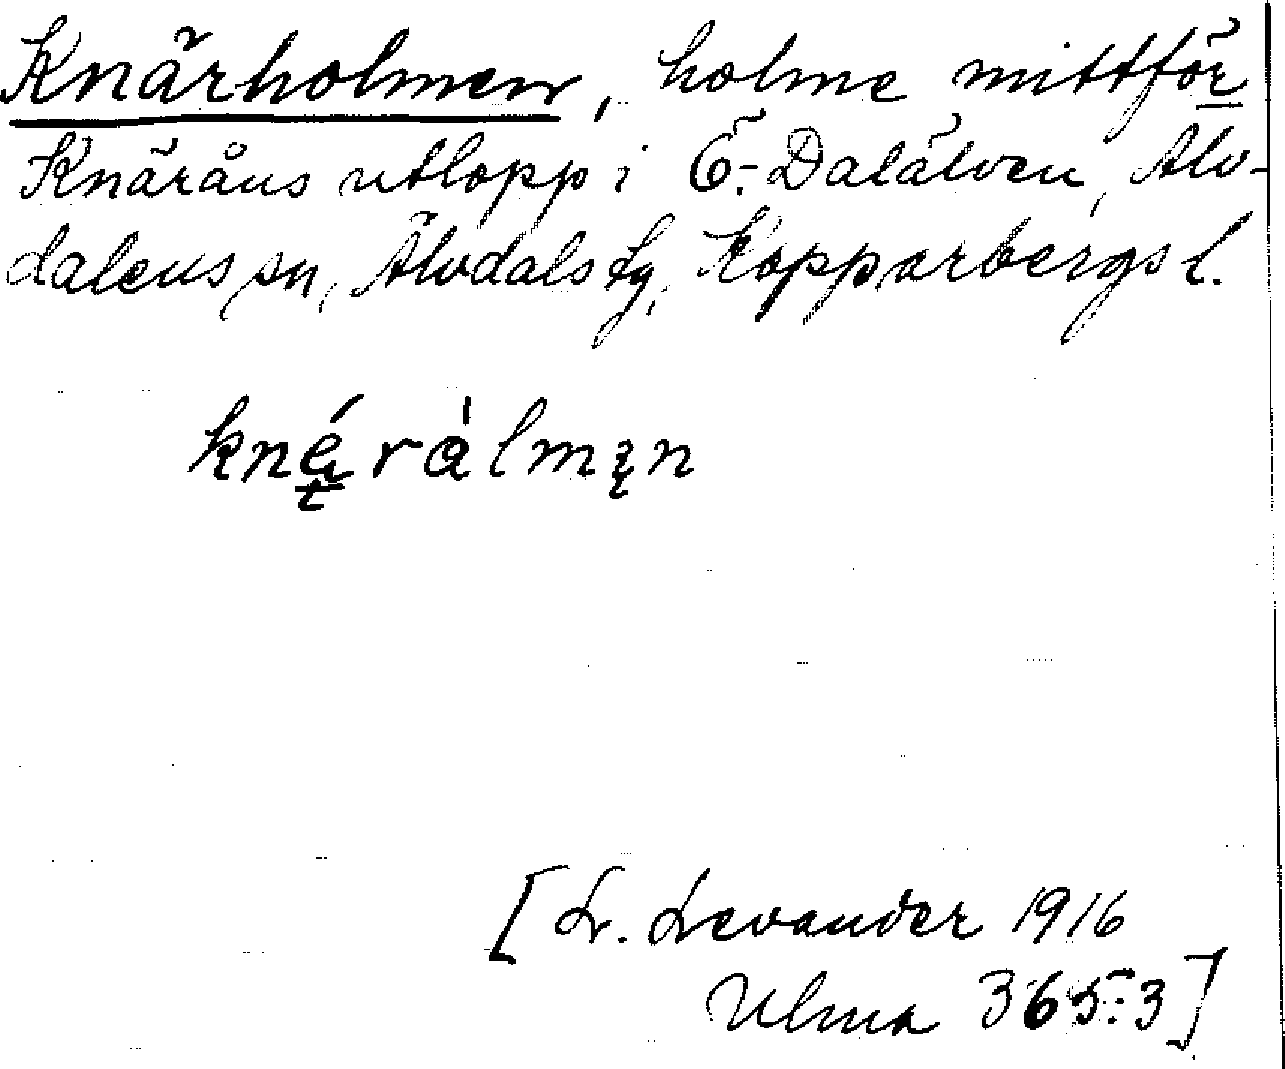 Knärholmen, holme mittför
Knäråns utlopp i Ö. Dalälven, Älv-
dalens sn, Älvdals tg, Kopparbergs l.
knǽràlmn̥
[L. Levander 1916
Ulma 365:3]